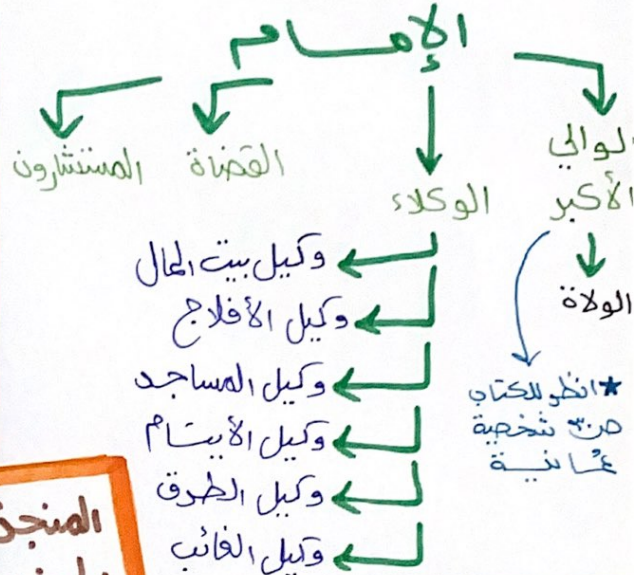 الإمام
الوالي الأكبر
الولاة
*انظر للكتاب
شخصية
عُمانية
الوكلاء
وكيل بيت المال
وكيل الأفلاج
وكيل المساجد
وكيل الأيتام
وكيل الطرق
وكيل الغائب
القضاة
المستشارون